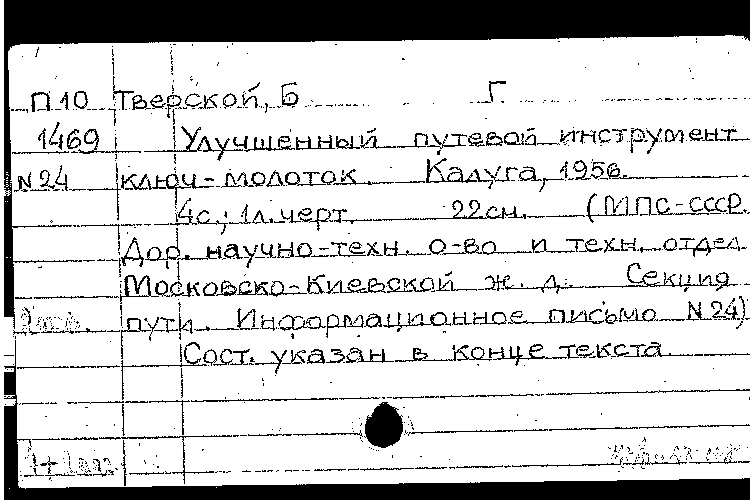 П10 Тверской, Б Г
1469 Улучшенный путевой инструмент
N24 ключ-молоток. Калуга, 1956.
4с.; 1л.черт. 22см. (МПС-СССР.
Дор. научно-техн. о-во и техн. отдел
Московско-Киевской ж. д. Секция
пути. Информационное письмо N24)
Сост. указан в конце текста.